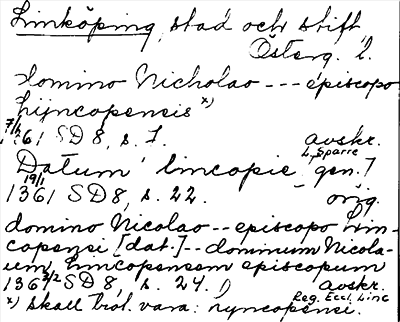 Linköping, stad och stift,
Österg. l.
domino Nicholao --- episcopo
Lijncopensis x)
7/1 1361 SD8, s. 7. avskr.
L. Sparre
Datum lincopie, gen.
19/1 1361 SD8, s. 22. orig.
domino Nicolao -- episcopo Lin-
copensi [dat.] -- dominum Nicola-
um Lincopensem episcopum
1363/2 SD8, s. 24. avskr.
Reg. Eccl. Linc
x) skall trol. vara: nyncopensi.